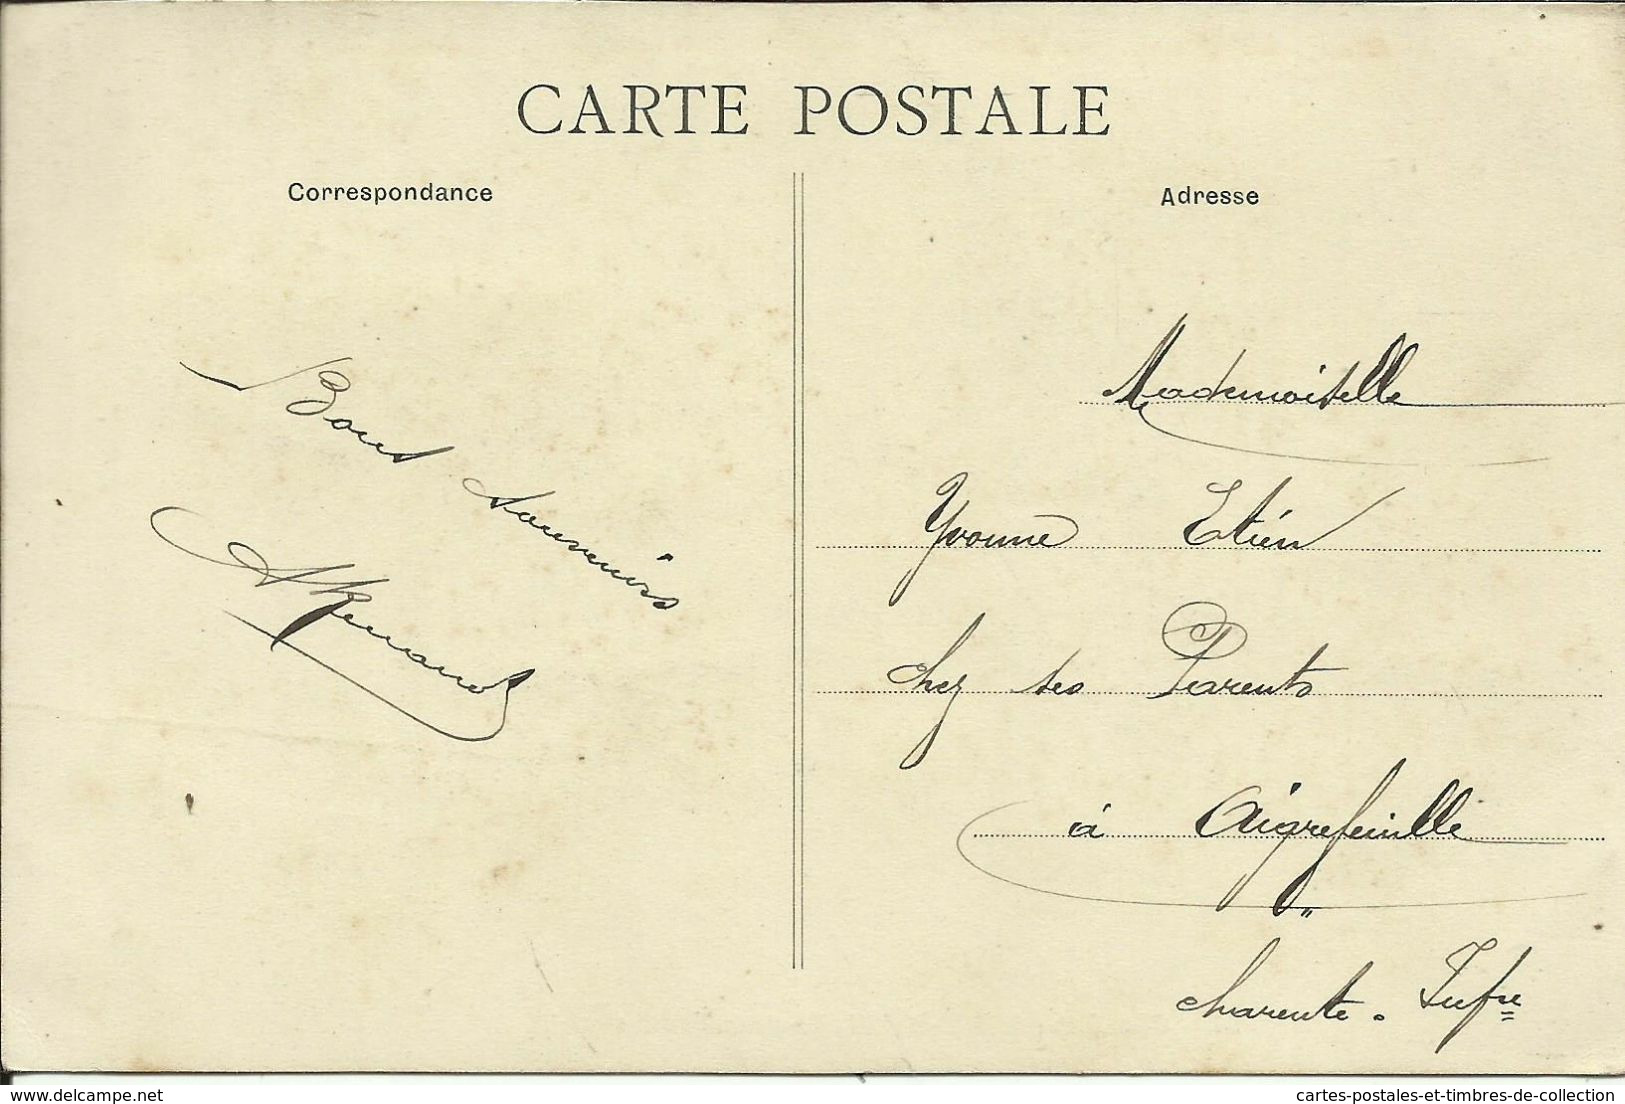 CARTE POSTALE
Correspondance
Adresse
Bons souvenirs
Mademoiselle
Yvonne Etien
chez ses Parents
à Aigrefeuille
"
Charente. Infre
delcampe.net
cartes-postales-et-timbres-de-collection